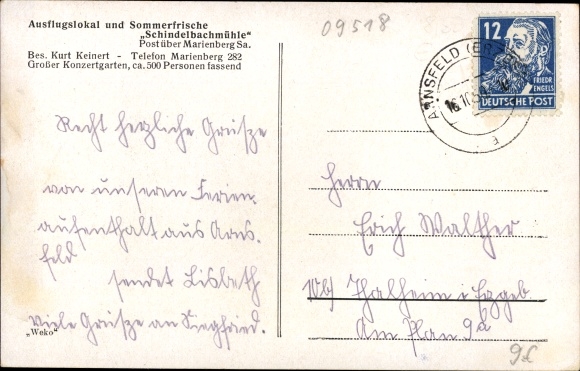 Ausflugslokal und Sommerfrische
„Schindelbachmühle“
Post über Marienberg Sa.
Bes. Kurt Keinert - Telefon Marienberg 282
Großer Konzertgarten, ca. 500 Personen fassend
09518
12
FRIEDR.
ENGELS
DEUTSCHE POST
ARNSFELD (ERZ
16.10.
a
Recht herzliche Grüsze
von unseren Ferien-
aufenthalt aus Arns-
feld
sendet Lisbeth
Viele Grüsze an Siegfried.
„Weko“
Herrn
Erich Walther
10b) Thalheim i Erzgeb
Am Plan 9a
9€